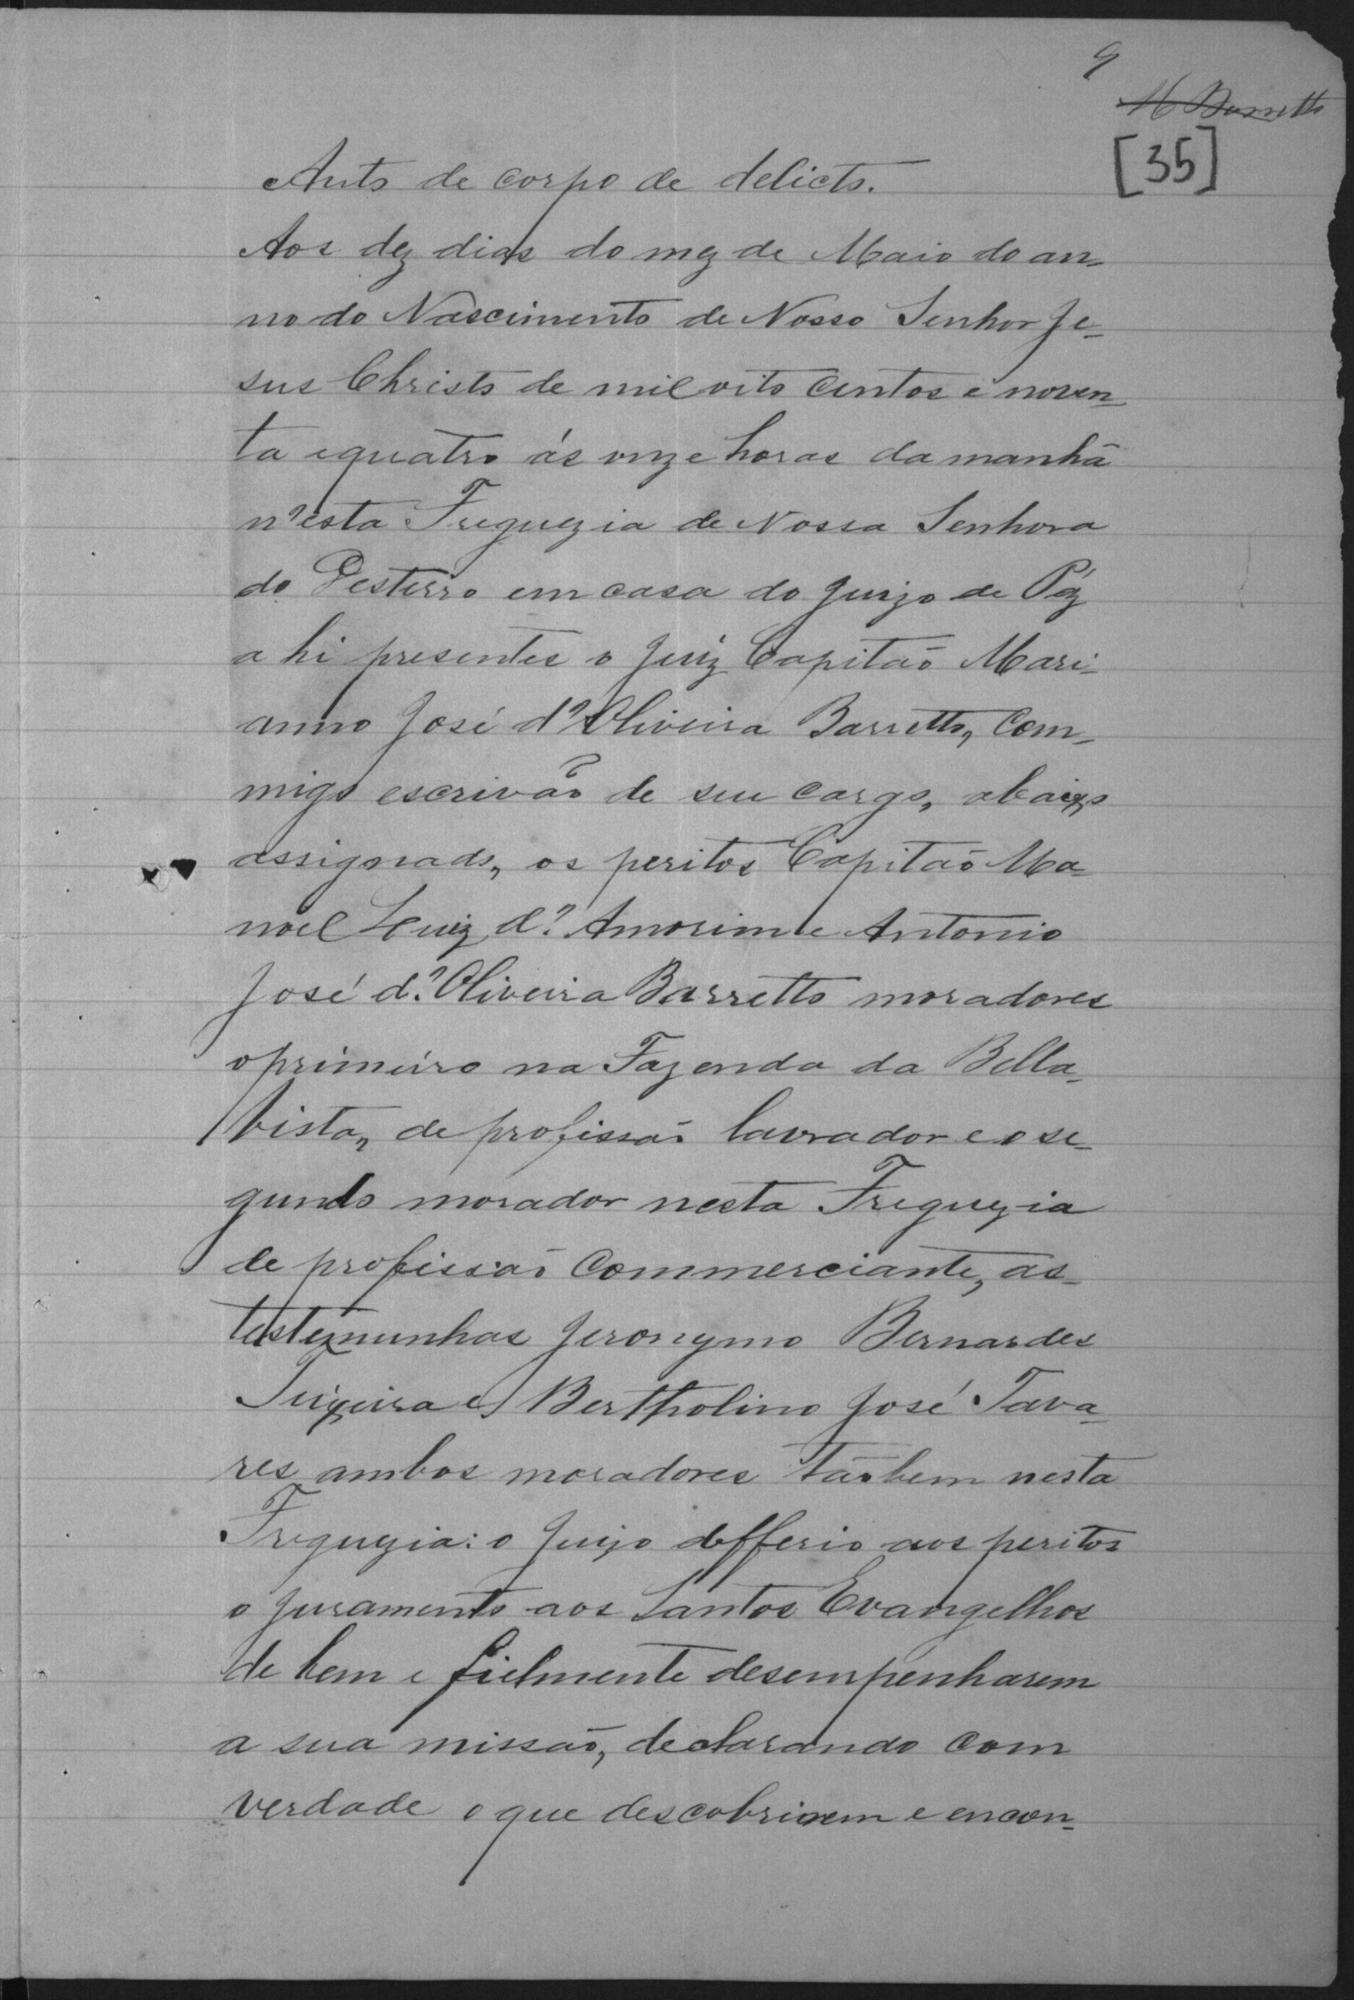 9
M Barretto
[35]
Auto de corpo de delicto.
Aos dez dias do mez de Maio do an-
no do Nascimento de Nosso Senhor Je-
sus Christo de mil oito centos e noven-
ta e quatro ás onze horas da manhã
n'esta Freguezia de Nossa Senhora
do Desterro em casa do Juizo de Páz
ahi presentes o Juiz Capitão Mari-
anno José d'Oliveira Barretto, com-
migo escrivão de seu cargo, abaixo
assignado, os peritos Capitão Ma-
noel Luiz d'Amorim e Antonio
José d'Oliveira Barretto moradores
o primeiro na Fazenda da Bella-
Vista, de profissão lavrador e o se-
gundo morador nesta Freguezia
de profissão Commerciante, as-
testemunhas Jeronymo Bernardes
Teixeira e Bertholino José Tava-
res ambos moradores tãobem nesta
Freguezia: o Juizo defferio aos peritos
o juramento aos Santos Evangelhos
de bem e fielmente desempenharem
a sua missão, declarando com
verdade o que descobrirem e encon-